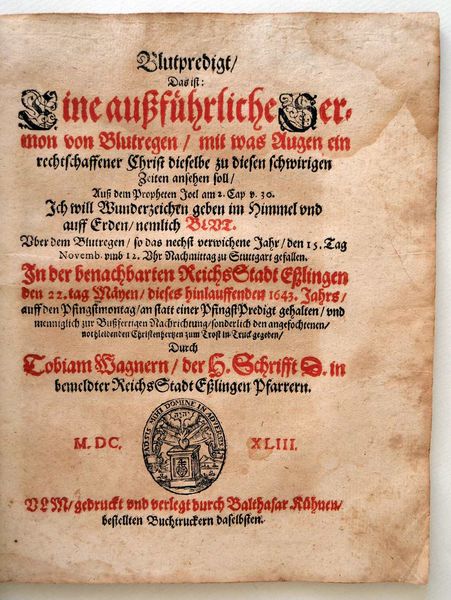 Blutpredigt/
Das ist:
Eine außführliche Ser-
mon von Blutregen / mit was Augen ein
rechtschaffener Christ dieselbe zu diesen schwirigen
Zeiten ansehen soll /
Auß dem Propheten Joel am 2. Cap v. 30.
Ich will Wunderzeichen geben im Himmel vnd
auff Erden / nemlich BLVT.
Vber dem Blutregen / so das nechst verwichene Jahr / den 15. Tag
Novemb. vmb 12. Vhr Nachmittag zu Stuttgart gefallen.
In der benachbarten ReichsStadt Eßlingen
den 22. tag Mäyen / dieses hinlauffenden 1643. Jahrs /
auff den Pfingstmontag / an statt einer PfingstPredigt gehalten / vnd
menniglich zur Bußfertigen Nachrichtung / sonderlich den angefochtenen /
nothleidenden Christenhertzen zum Trost in Truck gegeben /
Durch
Tobiam Wagnern / der H. Schrifft D. in
bemeldter ReichsStadt Eßlingen Pfarrern.
ADSIS MIHI DOMINE IN ADVERSIS
M. DC. XLIII.
VLM / gedruckt vnd verlegt durch Balthasar Kühnen /
bestellten Buchtruckern daselbsten.